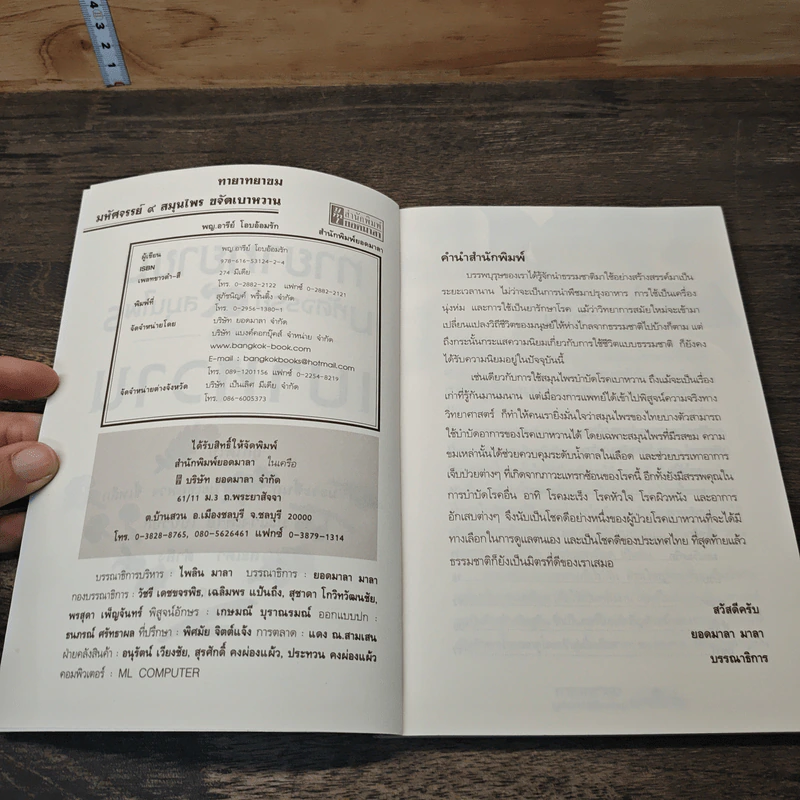 4 3 2 1
ทายาทยาขม
มหัศจรรย์ ๙ สมุนไพร ขจัดเบาหวาน
พญ.อารีย์ โอบอ้อมรัก
สำนักพิมพ์
ยอดมาลา
สำนักพิมพ์ยอดมาลา
ผู้เขียน พญ.อารีย์ โอบอ้อมรัก
ISBN 978-616-53124-2-4
เพลทขาวดำ-สี 274 มีเดีย
โทร. 0-2882-2122 แฟกซ์ 0-2882-2121
พิมพ์ที่ สุภัชนิญค์ พริ้นติ้ง จำกัด
โทร. 0-2956-1380-1
จัดจำหน่ายโดย บริษัท ยอดมาลา จำกัด
บริษัท แบงค์คอกบุ๊คส์ จำหน่าย จำกัด
www.bangkok-book.com
E-mail : bangkokbooks@hotmail.com
โทร. 089-1201156 แฟกซ์ 0-2254-8219
จัดจำหน่ายต่างจังหวัด บริษัท เป็นเลิศ มีเดีย จำกัด
โทร. 086-6005373
ได้รับสิทธิ์ให้จัดพิมพ์
สำนักพิมพ์ยอดมาลา ในเครือ
บริษัท ยอดมาลา จำกัด
61/11 ม.3 ถ.พระยาสัจจา
ต.บ้านสวน อ.เมืองชลบุรี จ.ชลบุรี 20000
โทร. 0-3828-8765, 080-5626461 แฟกซ์ 0-3879-1314
บรรณาธิการบริหาร : ไพลิน มาลา บรรณาธิการ : ยอดมาลา มาลา
กองบรรณาธิการ : วัชรี เดชขจรพิช, เฉลิมพร แป้นถึง, สุชาดา โกวิทวัฒนชัย,
พรสุดา เพ็ญจันทร์ พิสูจน์อักษร : เกษมณี บุราณรมณ์ ออกแบบปก :
ธนภรณ์ ศรัทธาผล ที่ปรึกษา : พิศมัย จิตต์แจ้ง การตลาด : แดง ณ.สามเสน
ฝ่ายคลังสินค้า : อนุรัตน์ เวียงชัย, สุรศักดิ์ คงผ่องแผ้ว, ประทวน คงผ่องแผ้ว
คอมพิวเตอร์ : ML COMPUTER
คำนำสำนักพิมพ์
บรรพบุรุษของเราได้รู้จักนำธรรมชาติมาใช้อย่างสร้างสรรค์มาเป็น
ระยะเวลานาน ไม่ว่าจะเป็นการนำพืชมาปรุงอาหาร การใช้เป็นเครื่อง
นุ่งห่ม และการใช้เป็นยารักษาโรค แม้ว่าวิทยาการสมัยใหม่จะเข้ามา
เปลี่ยนแปลงวิถีชีวิตของมนุษย์ให้ห่างไกลจากธรรมชาติไปบ้างก็ตาม แต่
ถึงกระนั้นกระแสความนิยมเกี่ยวกับการใช้ชีวิตแบบธรรมชาติ ก็ยังคง
ได้รับความนิยมอยู่ในปัจจุบันนี้
เช่นเดียวกับการใช้สมุนไพรบำบัดโรคเบาหวาน ถึงแม้จะเป็นเรื่อง
เก่าที่รู้กันมานมนาน แต่เมื่อวงการแพทย์ได้เข้าไปพิสูจน์ความจริงทาง
วิทยาศาสตร์ ก็ทำให้คนเรายิ่งมั่นใจว่าสมุนไพรของไทยบางตัวสามารถ
ใช้บำบัดอาการของโรคเบาหวานได้ โดยเฉพาะสมุนไพรที่มีรสขม ความ
ขมเหล่านั้นได้ช่วยควบคุมระดับน้ำตาลในเลือด และช่วยบรรเทาอาการ
เจ็บป่วยต่างๆ ที่เกิดจากภาวะแทรกซ้อนของโรคนี้ อีกทั้งยังมีสรรพคุณใน
การบำบัดโรคอื่น อาทิ โรคมะเร็ง โรคหัวใจ โรคผิวหนัง และอาการ
อักเสบต่างๆ จึงนับเป็นโชคดีอย่างหนึ่งของผู้ป่วยโรคเบาหวานที่จะได้มี
ทางเลือกในการดูแลตนเอง และเป็นโชคดีของประเทศไทย ที่สุดท้ายแล้ว
ธรรมชาติก็ยังเป็นมิตรที่ดีของเราเสมอ
สวัสดีครับ
ยอดมาลา มาลา
บรรณาธิการ